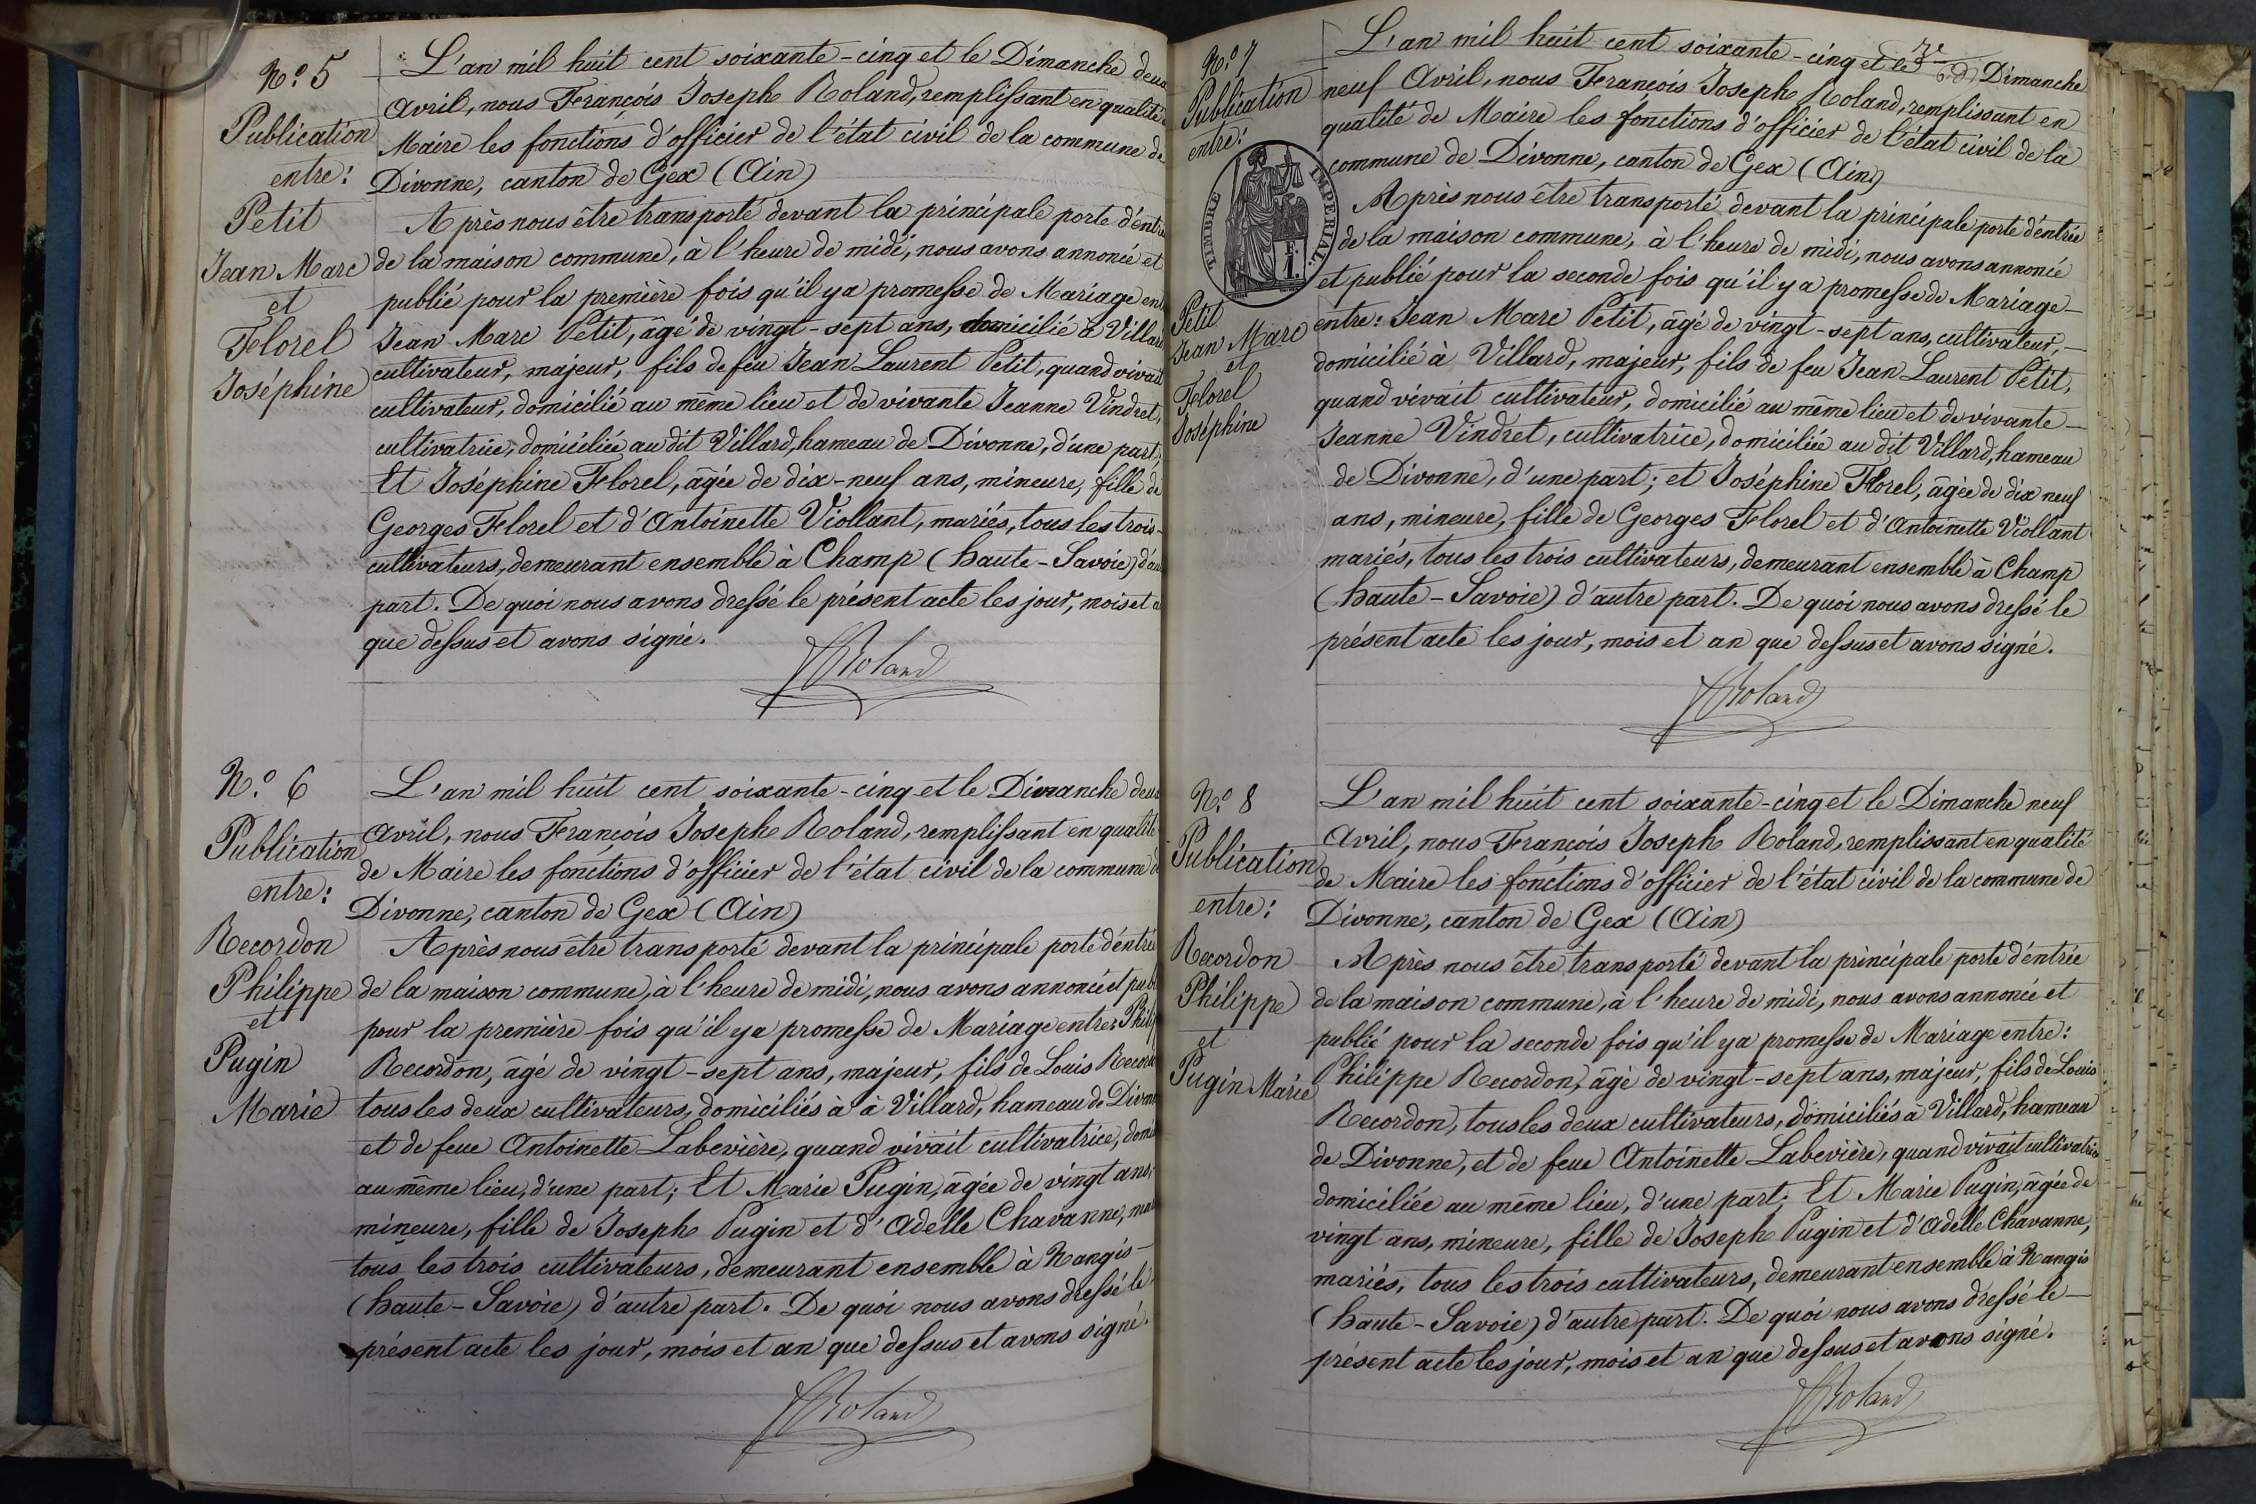 N.º 5
Publication
entre:
Petit
Jean Marc
et
Florel
Joséphine
L'an mil huit cent soixante-cinq et le Dimanche deux
Avril, nous François Joseph Roland, remplissant en qualité
Maire les fonctions d'officier de l'état civil de la commune de
Divonne, canton de Gex (Ain)
Après nous être transporté devant la principale porte d'entrée
de la maison commune, à l'heure de midi, nous avons annoncé et
publié pour la première fois qu'il y a promesse de Mariage en
Jean Marc Petit, âgé de vingt-sept ans, domicilié à Villard
cultivateur, majeur, fils de feu Jean Laurent Petit, quand vivait
cultivateur, domicilié au même lieu et de vivante Jeanne Vindret,
cultivatrice, domiciliée au dit Villard, hameau de Divonne, d'une part,
Et Joséphine Florel, âgée de dix-neuf ans, mineure, fille de
Georges Florel et d'Antoinette Viollant, mariés, tous les trois-
cultivateurs, demeurant ensemble à Champ (haute-Savoie) d'au
part. De quoi nous avons dressé le présent acte les jour, mois et a
que dessus et avons signé.
Roland
N.º 6
Publication
entre:
Recordon
Philippe
et
Pugin
Marie
L'an mil huit cent soixante-cinq et le Dimanche deux
Avril, nous François Joseph Roland, remplissant en qualité
de Maire les fonctions d'officier de l'état civil de la commune de
Divonne, canton de Gex (Ain)
Après nous être transporté devant la principale porte d'entrée
de la maison commune, à l'heure de midi, nous avons annoncé et pub
pour la première fois qu'il y a promesse de Mariage entre: Phili
Recordon, âgé de vingt-sept ans, majeur, fils de Louis Recordon
tous les deux cultivateurs, domiciliés à à Villard, hameau de Divonne
et de feue Antoinette Labevière, quand vivait cultivatrice, domi
au même lieu, d'une part; Et Marie Pugin, âgée de vingt ans
mineure, fille de Joseph Pugin et d'Adelle Chavanne, mar
tous les trois cultivateurs, demeurant ensemble à Nangis-
(haute-Savoie) d'autre part. De quoi nous avons dressé le
présent acte les jour, mois et an que dessus et avons signé.
Roland
N.º 7
Publication
entre:
TIMBRE IMPÉRIAL
1 F.
Petit
Jean Marc
et
Florel
Joséphine
L'an mil huit cent soixante-cinq et le Dimanche
neuf Avril, nous François Joseph Roland, remplissant en
qualité de Maire les fonctions d'officier de l'état civil de la
commune de Divonne, canton de Gex (Ain)
Après nous être transporté devant la principale porte d'entrée
de la maison commune, à l'heure de midi, nous avons annoncé
et publié pour la seconde fois qu'il y a promesse de Mariage-
entre: Jean Marc Petit, âgé de vingt-sept ans, cultivateur,-
domicilié à Villard, majeur, fils de feu Jean Laurent Petit,
quand vivait cultivateur, domicilié au même lieu et de vivante-
Jeanne Vindret, cultivatrice, domiciliée au dit Villard, hameau
de Divonne, d'une part; et Joséphine Florel, âgée de dix neuf
ans, mineure, fille de Georges Florel et d'Antoinette Viollant
mariés, tous les trois cultivateurs, demeurant ensemble à Champ
(haute-Savoie) d'autre part. De quoi nous avons dressé le
présent acte les jour, mois et an que dessus et avons signé.
Roland
N.º 8
Publication
entre:
Recordon
Philippe
et
Pugin Marie
L'an mil huit cent soixante-cinq et le Dimanche neuf
Avril, nous François Joseph Roland, remplissant en qualité
de Maire les fonctions d'officier de l'état civil de la commune de
Divonne, canton de Gex (Ain)
Après nous être transporté devant la principale porte d'entrée
de la maison commune, à l'heure de midi, nous avons annoncé et
publié pour la seconde fois qu'il y a promesse de Mariage entre:
Philippe Recordon, âgé de vingt-sept ans, majeur, fils de Louis
Recordon, tous les deux cultivateurs, domiciliés à Villard, hameau
de Divonne, et de feue Antoinette Labevière, quand vivait cultivatrice
domiciliée au même lieu, d'une part; Et Marie Pugin, âgée de
vingt ans, mineure, fille de Joseph Pugin et d'Adelle Chavanne,
mariés, tous les trois cultivateurs, demeurant ensemble à Nangis
(haute-Savoie) d'autre part. De quoi nous avons dressé le-
présent acte les jour, mois et an que dessus et avons signé.
Roland